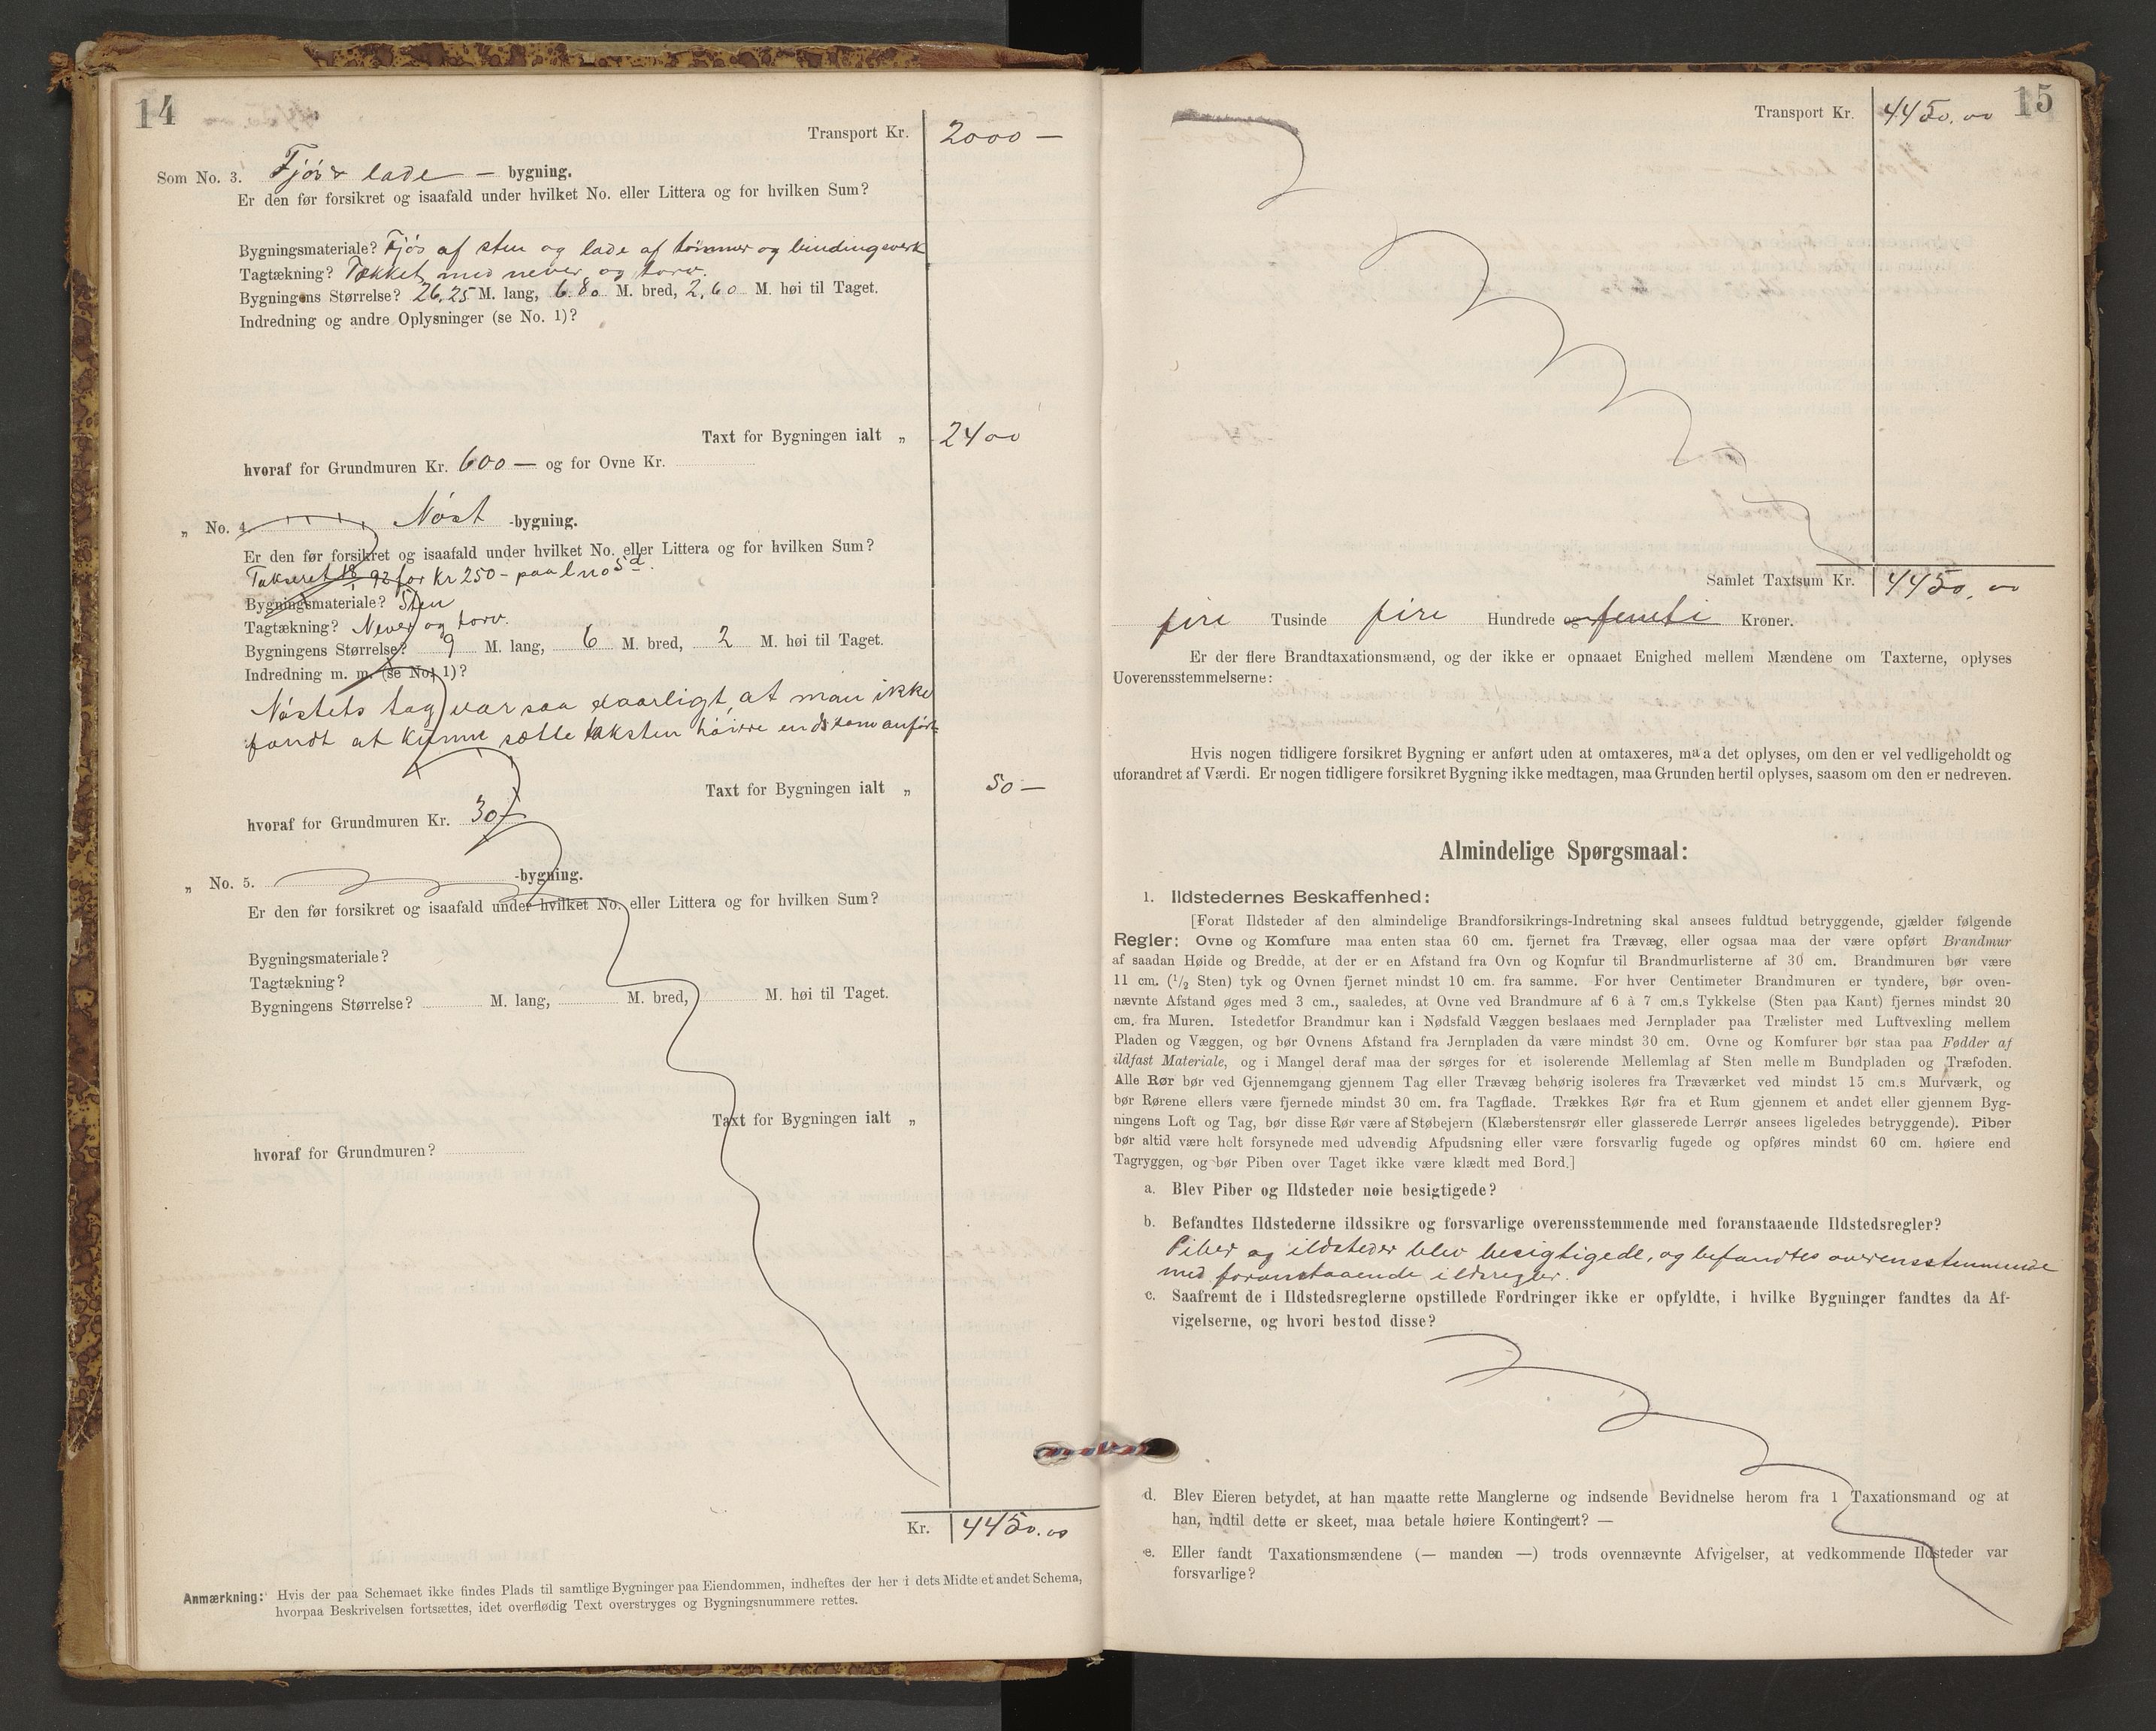 14
Transport Kr. 2000 —
Som No. 3. Fjös & lade — bygning.
Er den før forsikret og isaafald under hvilket No. eller Littera og for hvilken Sum?
Bygningsmateriale? Fjös af sten og lade af tömmer og bindingsverk
Tagtækning? Tækket med never og torv.
Bygningens Størrelse? 26,25 M. lang, 6.80 M. bred, 2,60 M. høi til Taget.
Indredning og andre Oplysninger (se No. 1)?
Taxt for Bygningen ialt „ 2400
hvoraf for Grundmuren Kr. 600 — og for Ovne Kr.
„ No. 4. Nöst -bygning.
Er den før forsikret og isaafald under hvilket No. eller Littera og for hvilken Sum?
Takseret 92 for Kr 250 - paa l no 5d.
Bygningsmateriale? Sten
Tagtækning? Never og torv.
Bygningens Størrelse? 9 M. lang, 6 M. bred, 2 M. høi til Taget.
Indredning m. m. (se No. 1)?
Nöstets tag var saa daarligt, at man ikke
fandt at kunne sætte taksten höiere end som anfört
Taxt for Bygningen ialt „ 50 —
hvoraf for Grundmuren Kr. 30
„ No. 5. -bygning.
Er den før forsikret og isaafald under hvilket No. eller Littera og for hvilken Sum?
Bygningsmateriale?
Tagtækning?
Bygningens Størrelse? M. lang, M. bred, M. høi til Taget.
Taxt for Bygningen ialt „
hvoraf for Grundmuren?
Kr. 4450.00
Anmærkning: Hvis der paa Schemaet ikke findes Plads til samtlige Bygninger paa Eiendommen, indheftes der her i dets Midte et andet Schema,
hvorpaa Beskrivelsen fortsættes, idet overflødig Text overstryges og Bygningsnummere rettes.
15
Transport Kr. 4450.00
Samlet Taxtsum Kr. 4450.00
fire Tusinde fire Hundrede og femti Kroner.
Er der flere Brandtaxationsmænd, og der ikke er opnaaet Enighed mellem Mændene om Taxterne, oplyses
Uoverensstemmelserne:
Hvis nogen tidligere forsikret Bygning er anført uden at omtaxeres, maa det oplyses, om den er vel vedligeholdt og
uforandret af Værdi. Er nogen tidligere forsikret Bygning ikke medtagen, maa Grunden hertil oplyses, saasom om den er nedreven.
Almindelige Spørgsmaal:
1. Ildstedernes Beskaffenhed:
[Forat Ildsteder af den almindelige Brandforsikrings-Indretning skal ansees fuldtud betryggende, gjælder følgende
Regler: Ovne og Komfure maa enten staa 60 cm. fjernet fra Trævæg, eller ogsaa maa der være opført Brandmur
af saadan Høide og Bredde, at der er en Afstand fra Ovn og Komfur til Brandmurlisterne af 30 cm. Brandmuren bør være
11 cm. (1/2 Sten) tyk og Ovnen fjernet mindst 10 cm. fra samme. For hver Centimeter Brandmuren er tyndere, bør oven-
nævnte Afstand øges med 3 cm., saaledes, at Ovne ved Brandmure af 6 à 7 cm.s Tykkelse (Sten paa Kant) fjernes mindst 20
cm. fra Muren. Istedetfor Brandmur kan i Nødsfald Væggen beslaaes med Jernplader paa Trælister med Luftvexling mellem
Pladen og Væggen, og bør Ovnens Afstand fra Jernpladen da være mindst 30 cm. Ovne og Komfurer bør staa paa Fødder af
ildfast Materiale, og i Mangel deraf maa der sørges for et isolerende Mellemlag af Sten mellem Bundpladen og Træfoden.
Alle Rør bør ved Gjennemgang gjennem Tag eller Trævæg behørig isoleres fra Træværket ved mindst 15 cm.s Murværk, og
bør Rørene ellers være fjernede mindst 30 cm. fra Tagflade. Trækkes Rør fra et Rum gjennem et andet eller gjennem Byg-
ningens Loft og Tag, bør disse Rør være af Støbejern (Klæberstensrør eller glasserede Lerrør ansees ligeledes betryggende). Piber
bør altid være helt forsynede med udvendig Afpudsning eller være forsvarlig fugede og opføres mindst 60 cm. høiere end
Tagryggen, og bør Piben over Taget ikke være klædt med Bord.]
a. Blev Piber og Ildsteder nøie besigtigede?
b. Befandtes Ildstederne ildssikre og forsvarlige overensstemmende med foranstaaende Ildstedsregler?
Piber og ildsteder blev besigtigede, og befandtes overensstemmende
med foranstaaende ildsregler.
c. Saafremt de i Ildstedsreglerne opstillede Fordringer ikke er opfyldte, i hvilke Bygninger fandtes da Af-
vigelserne, og hvori bestod disse?
d. Blev Eieren betydet, at han maatte rette Manglerne og indsende Bevidnelse herom fra 1 Taxationsmand og at
han, indtil dette er skeet, maa betale høiere Kontingent? —
e. Eller fandt Taxationsmændene (— manden —) trods ovennævnte Afvigelser, at vedkommende Ildsteder var
forsvarlige?